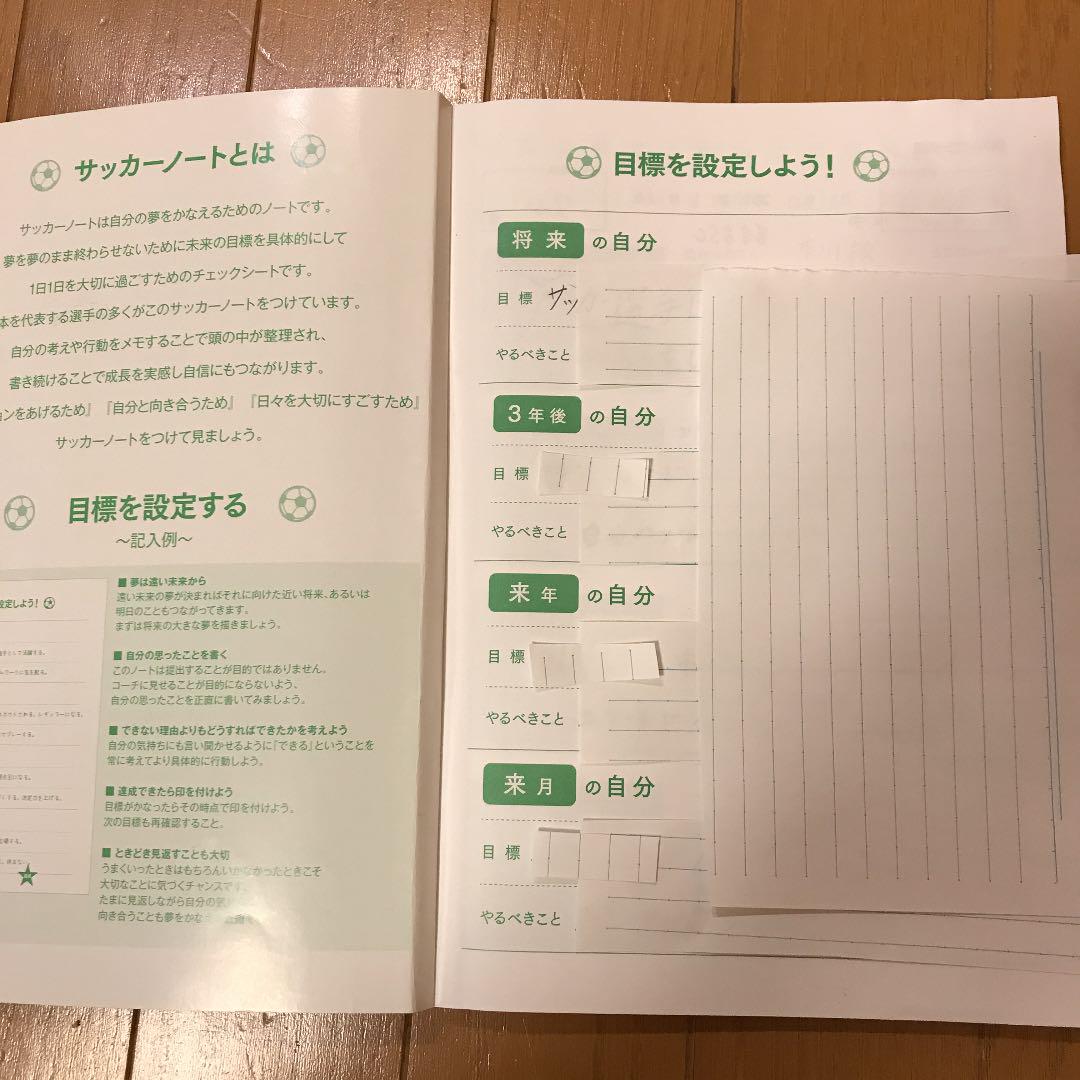 サッカーノートとは
サッカーノートは自分の夢をかなえるためのノートです。
夢を夢のまま終わらせないために未来の目標を具体的にして
1日1日を大切に過ごすためのチェックシートです。
本を代表する選手の多くがこのサッカーノートをつけています。
自分の考えや行動をメモすることで頭の中が整理され、
書き続けることで成長を実感し自信にもつながります。
ョンをあげるため』『自分と向き合うため』『日々を大切にすごすため』
サッカーノートをつけて見ましょう。
目標を設定する
～記入例～
設定しよう！
■ 夢は遠い未来から
遠い未来の夢が決まればそれに向けた近い将来、あるいは
明日のこともつながってきます。
まずは将来の大きな夢を描きましょう。
■ 自分の思ったことを書く
このノートは提出することが目的ではありません。
コーチに見せることが目的にならないよう、
自分の思ったことを正直に書いてみましょう。
■ できない理由よりもどうすればできたかを考えよう
自分の気持ちにも言い聞かせるように「できる」ということを
常に考えてより具体的に行動しよう。
■ 達成できたら印を付けよう
目標がかなったらその時点で印を付けよう。
次の目標も再確認すること。
■ ときどき見返すことも大切
うまくいったときはもちろんいかなかったときこそ
大切なことに気づくチャンスです
たまに見返しながら自分の
向き合うことも夢をかな
目標を設定しよう！
将来 の自分
目標 サッ
やるべきこと
3年後 の自分
目標
やるべきこと
来年 の自分
目標
やるべきこと
来月 の自分
目標
やるべきこと